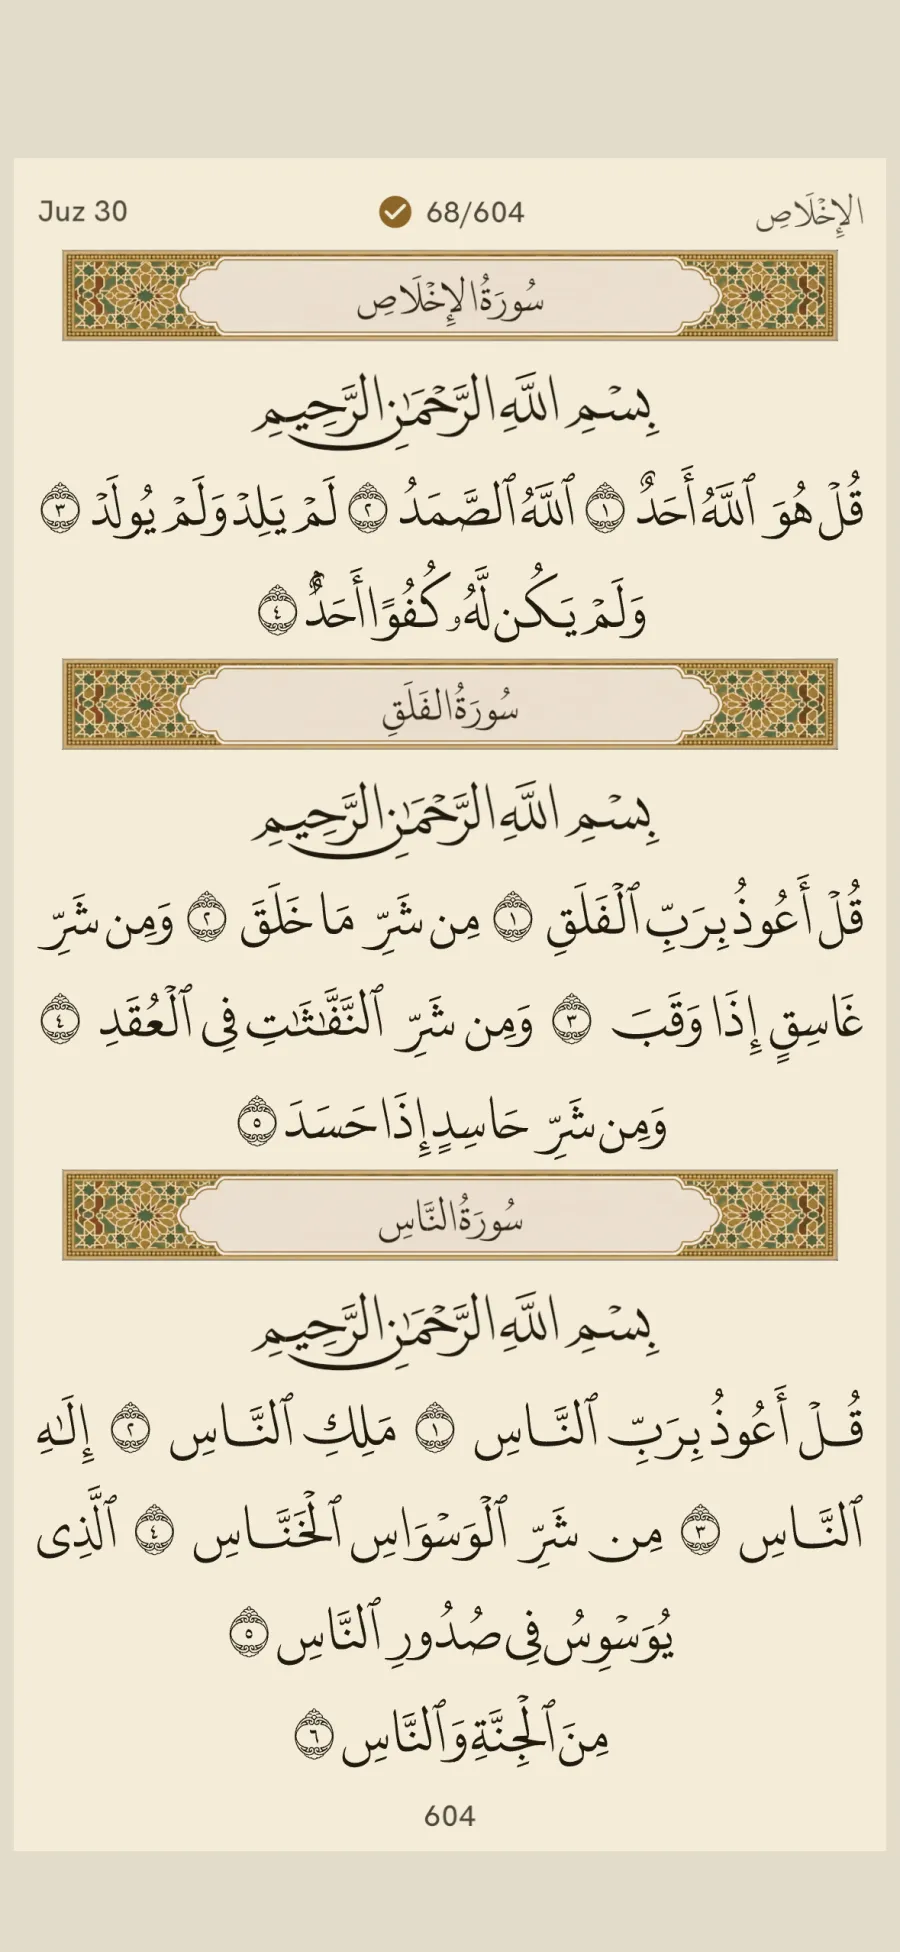 Juz 30
68/604
الإِخْلَاصِ
سُورَةُ الإِخْلَاصِ
بِسْمِ اللَّهِ الرَّحْمَٰنِ الرَّحِيمِ
قُلْ هُوَ ٱللَّهُ أَحَدٌ ١ ٱللَّهُ ٱلصَّمَدُ ٢ لَمْ يَلِدْ وَلَمْ يُولَدْ ٣
وَلَمْ يَكُن لَّهُۥ كُفُوًا أَحَدٌۢ ٤
سُورَةُ الفَلَقِ
بِسْمِ اللَّهِ الرَّحْمَٰنِ الرَّحِيمِ
قُلْ أَعُوذُ بِرَبِّ ٱلْفَلَقِ ١ مِن شَرِّ مَا خَلَقَ ٢ وَمِن شَرِّ
غَاسِقٍ إِذَا وَقَبَ ٣ وَمِن شَرِّ ٱلنَّفَّٰثَٰتِ فِى ٱلْعُقَدِ ٤
وَمِن شَرِّ حَاسِدٍ إِذَا حَسَدَ ٥
سُورَةُ النَّاسِ
بِسْمِ اللَّهِ الرَّحْمَٰنِ الرَّحِيمِ
قُلْ أَعُوذُ بِرَبِّ ٱلنَّاسِ ١ مَلِكِ ٱلنَّاسِ ٢ إِلَٰهِ
ٱلنَّاسِ ٣ مِن شَرِّ ٱلْوَسْوَاسِ ٱلْخَنَّاسِ ٤ ٱلَّذِى
يُوَسْوِسُ فِى صُدُورِ ٱلنَّاسِ ٥
مِنَ ٱلْجِنَّةِ وَٱلنَّاسِ ٦
604